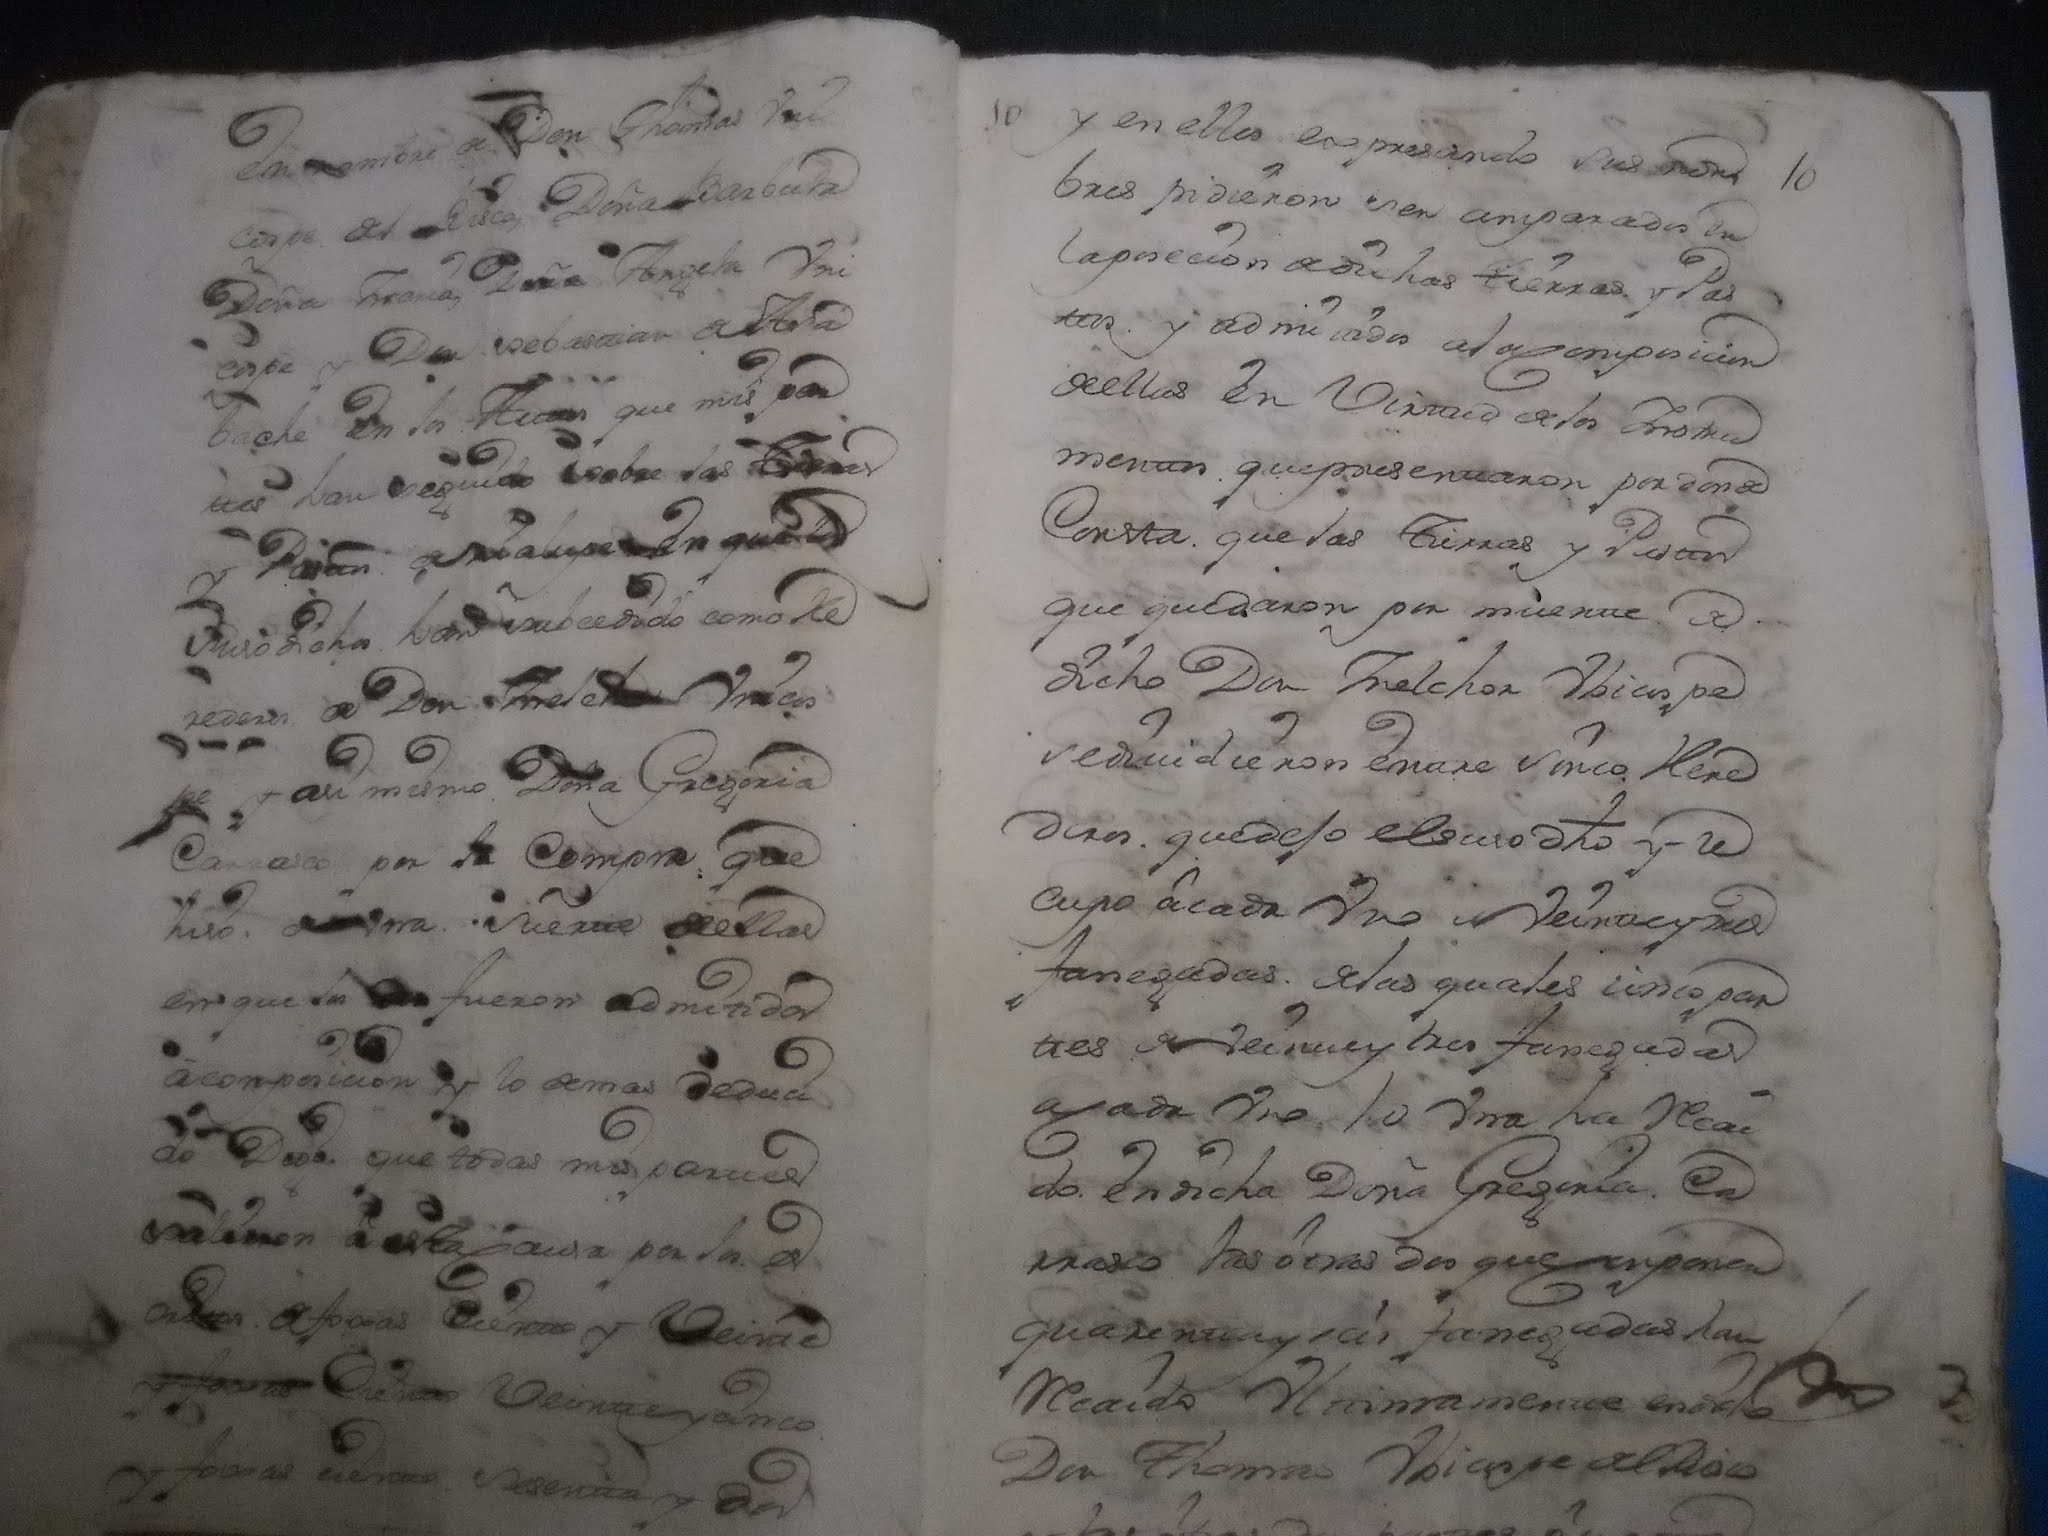 En nombre de Don Thomas Vri
cospe del Risco, Doña Barbula
Doña Maria, Doña Angela Vri
cospe y Don Sebastian de Ata
bache en los Autos que mis par
tes han seguido sobre las Tierras
y Pastos de en que los
susodichos han subcedido como He
rederos de Don Melchor Vricos
pe y asi mismo Doña Gregoria
Carrasco por la Compra que
hiso de Vna suerte dellas
en que los fueron admitidos
à composicion y lo demas deduci
do Digo que todas mis partes
salieron à esta causa por los es
critos de foxas Ciento y Veinte
y foxas Ciento Veinte y cinco
y foxas ciento sesenta y dos
10 y en ellos expresando sus nom 10
bres pidieron ser amparados en
la posecion de dichas tierras y Pas
tos y admitidos a la composicion
dellos en Virtud de los Instru
mentos que presentaron por donde
Consta que las Tierras y Pastos
que quedaron por muerte de
dicho Don Melchor Vricospe
se dividieron entre sinco Here
deros que dejo el susodho y le
cupo à cada Vno a Veinte y tres
fanegadas de las quales cinco par
tes de Veinte y tres fanegadas
a cada Vno la Vna ha Recai
do en dicha Doña Gregoria Ca
rrasco las otras dos que componen
quarenta y seis fanegadas han
Recaido Vltimamente en dicho
Don Thomas Vricospe del Risco